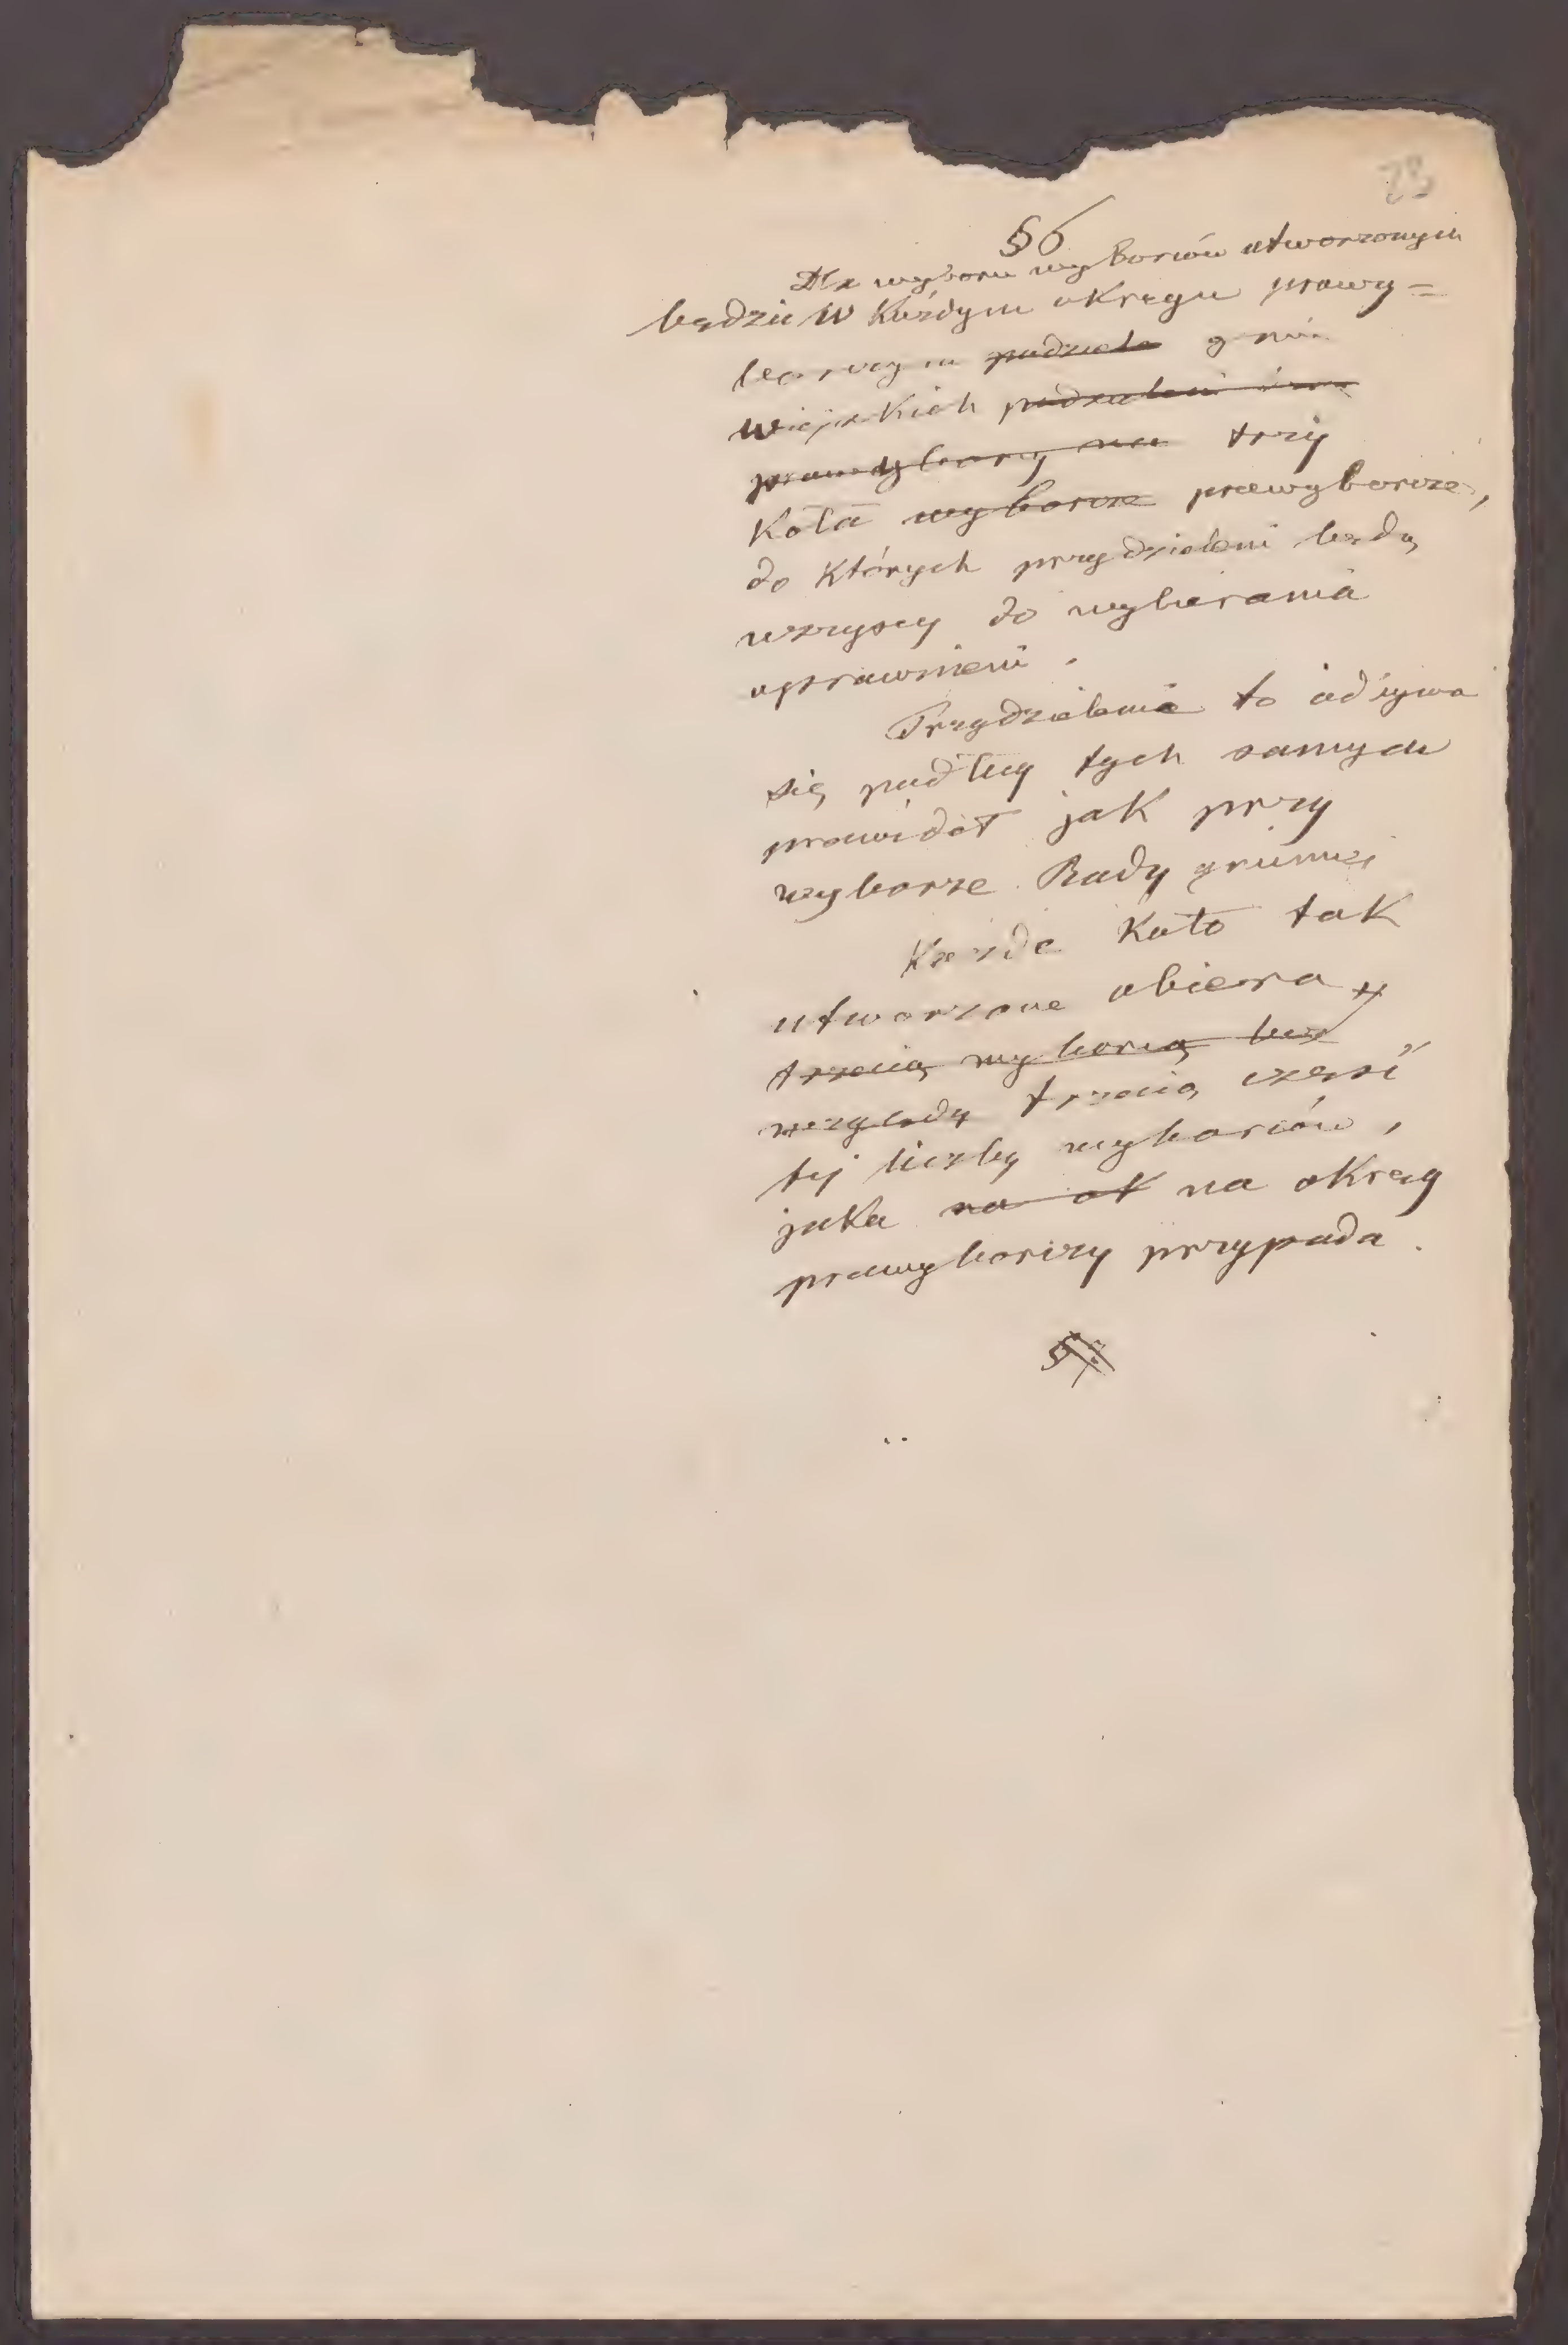 23
§ 6
Dla wyboru wyborców utworzonych
będzie w każdym okręgu prawy=
borczym podziela gmin
wiejskich podzieleni
prawybory na trzy
Koła wyborcze prawyborcze,
do których przydzieleni będą
wszyscy do wybierania
uprawnieni.
Przydzielenie to odbywa
się podług tych samych
prawideł jak przy
wyborze Rady gminnej
Każde Koło tak
utworzone obiera
trzecią wyborcą bez
względu trzecią część
tej liczby wyborców,
jaka na ok na okręg
prawyborczy przypada.
§ 7